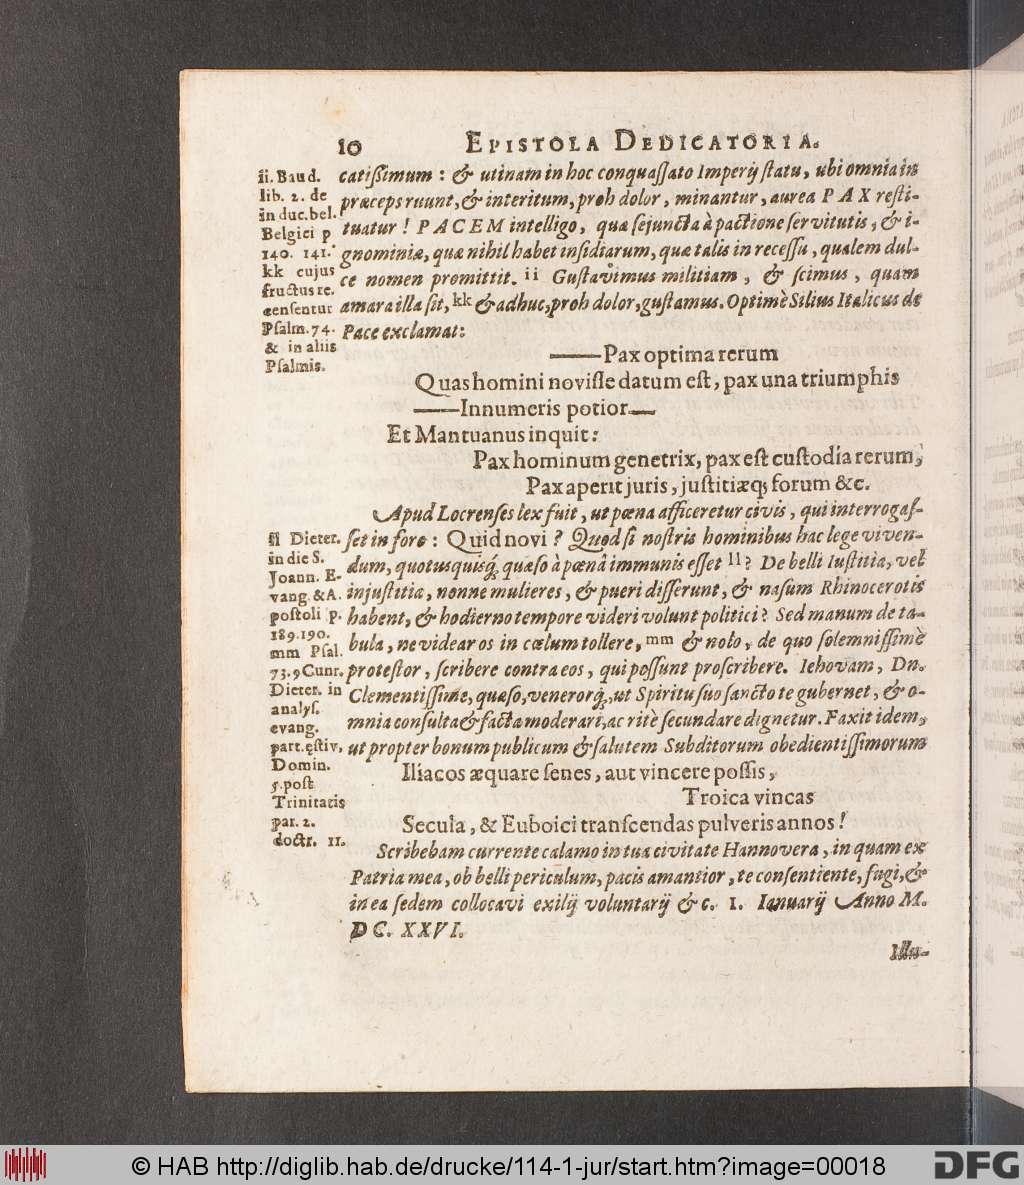 10 EPISTOLA DEDICATORIA.
catißimum : & utinam in hoc conquaſſato Imperij ſtatu, ubi omnia in
præceps ruunt, & interitum, proh dolor, minantur, aurea PAX reſti-
tuatur ! PACEM intelligo, quæ ſejuncta à pactione ſervitutis, & i-
gnominiæ, quæ nihil habet inſidiarum, quæ talis in receſſu, qualem dul-
ce nomen promittit. ii Guſtavimus militiam, & ſcimus, quam
amara illa ſit, kk & adhuc, proh dolor, guſtamus. Optimè Silius Italicus de
Pace exclamat:
ii. Baud.
lib. 2. de
induc. bel.
Belgici p
140. 141.
kk cujus
fructus re.
cenſentur
Pſalm. 74.
& in aliis
Pſalmis.
——Pax optima rerum
Quas homini noviſſe datum eſt, pax una triumphis
——Innumeris potior—
Et Mantuanus inquit:
Pax hominum genetrix, pax eſt cuſtodia rerum,
Pax aperit juris, juſtitiæq; forum &c.
Apud Locrenſes lex fuit, ut pœna afficeretur civis, qui interrogaſ-
ſet in foro : Quid novi ? Quod ſi noſtris hominibus hac lege viven-
dum, quotusquisq́, quæſo à pœnâ immunis eſſet ll ? De belli Iuſtitia, vel
injuſtitia, nonne mulieres, & pueri diſſerunt, & naſum Rhinocerotis
habent, & hodierno tempore videri volunt politici ? Sed manum de ta-
bula, ne videar os in cœlum tollere, mm & nolo, de quo ſolemniſſimè
proteſtor, ſcribere contra eos, qui poſſunt proſcribere. Iehovam, Dn.
Clementiſſime, quæſo, venerorq́, ut Spiritu ſuo ſancto te gubernet, & o-
mnia conſulta & facta moderari, ac ritè ſecundare dignetur. Faxit idem,
ut propter bonum publicum & ſalutem Subditorum obedientiſſimorum
ll Dieter.
in die S.
Joann. E-
vang. & A.
poſtoli p.
189. 190.
mm Pſal.
73. 9 Cunr.
Dieter. in
analyſ.
evang.
part. ęſtiv.
Domin.
5. poſt
Trinitatis
par. 2.
doctr. 11.
Iliacos æquare ſenes, aut vincere poſſis,
Troica vincas
Secula, & Euboici tranſcendas pulveris annos !
Scribebam currente calamo in tua civitate Hannovera, in quam ex
Patria mea, ob belli periculum, pacis amantior, te conſentiente, fugi, &
in ea ſedem collocavi exilij voluntarij &c. 1. Ianuarij Anno M.
DC. XXVI.
Illu-
© HAB http://diglib.hab.de/drucke/114-1-jur/start.htm?image=00018
DFG